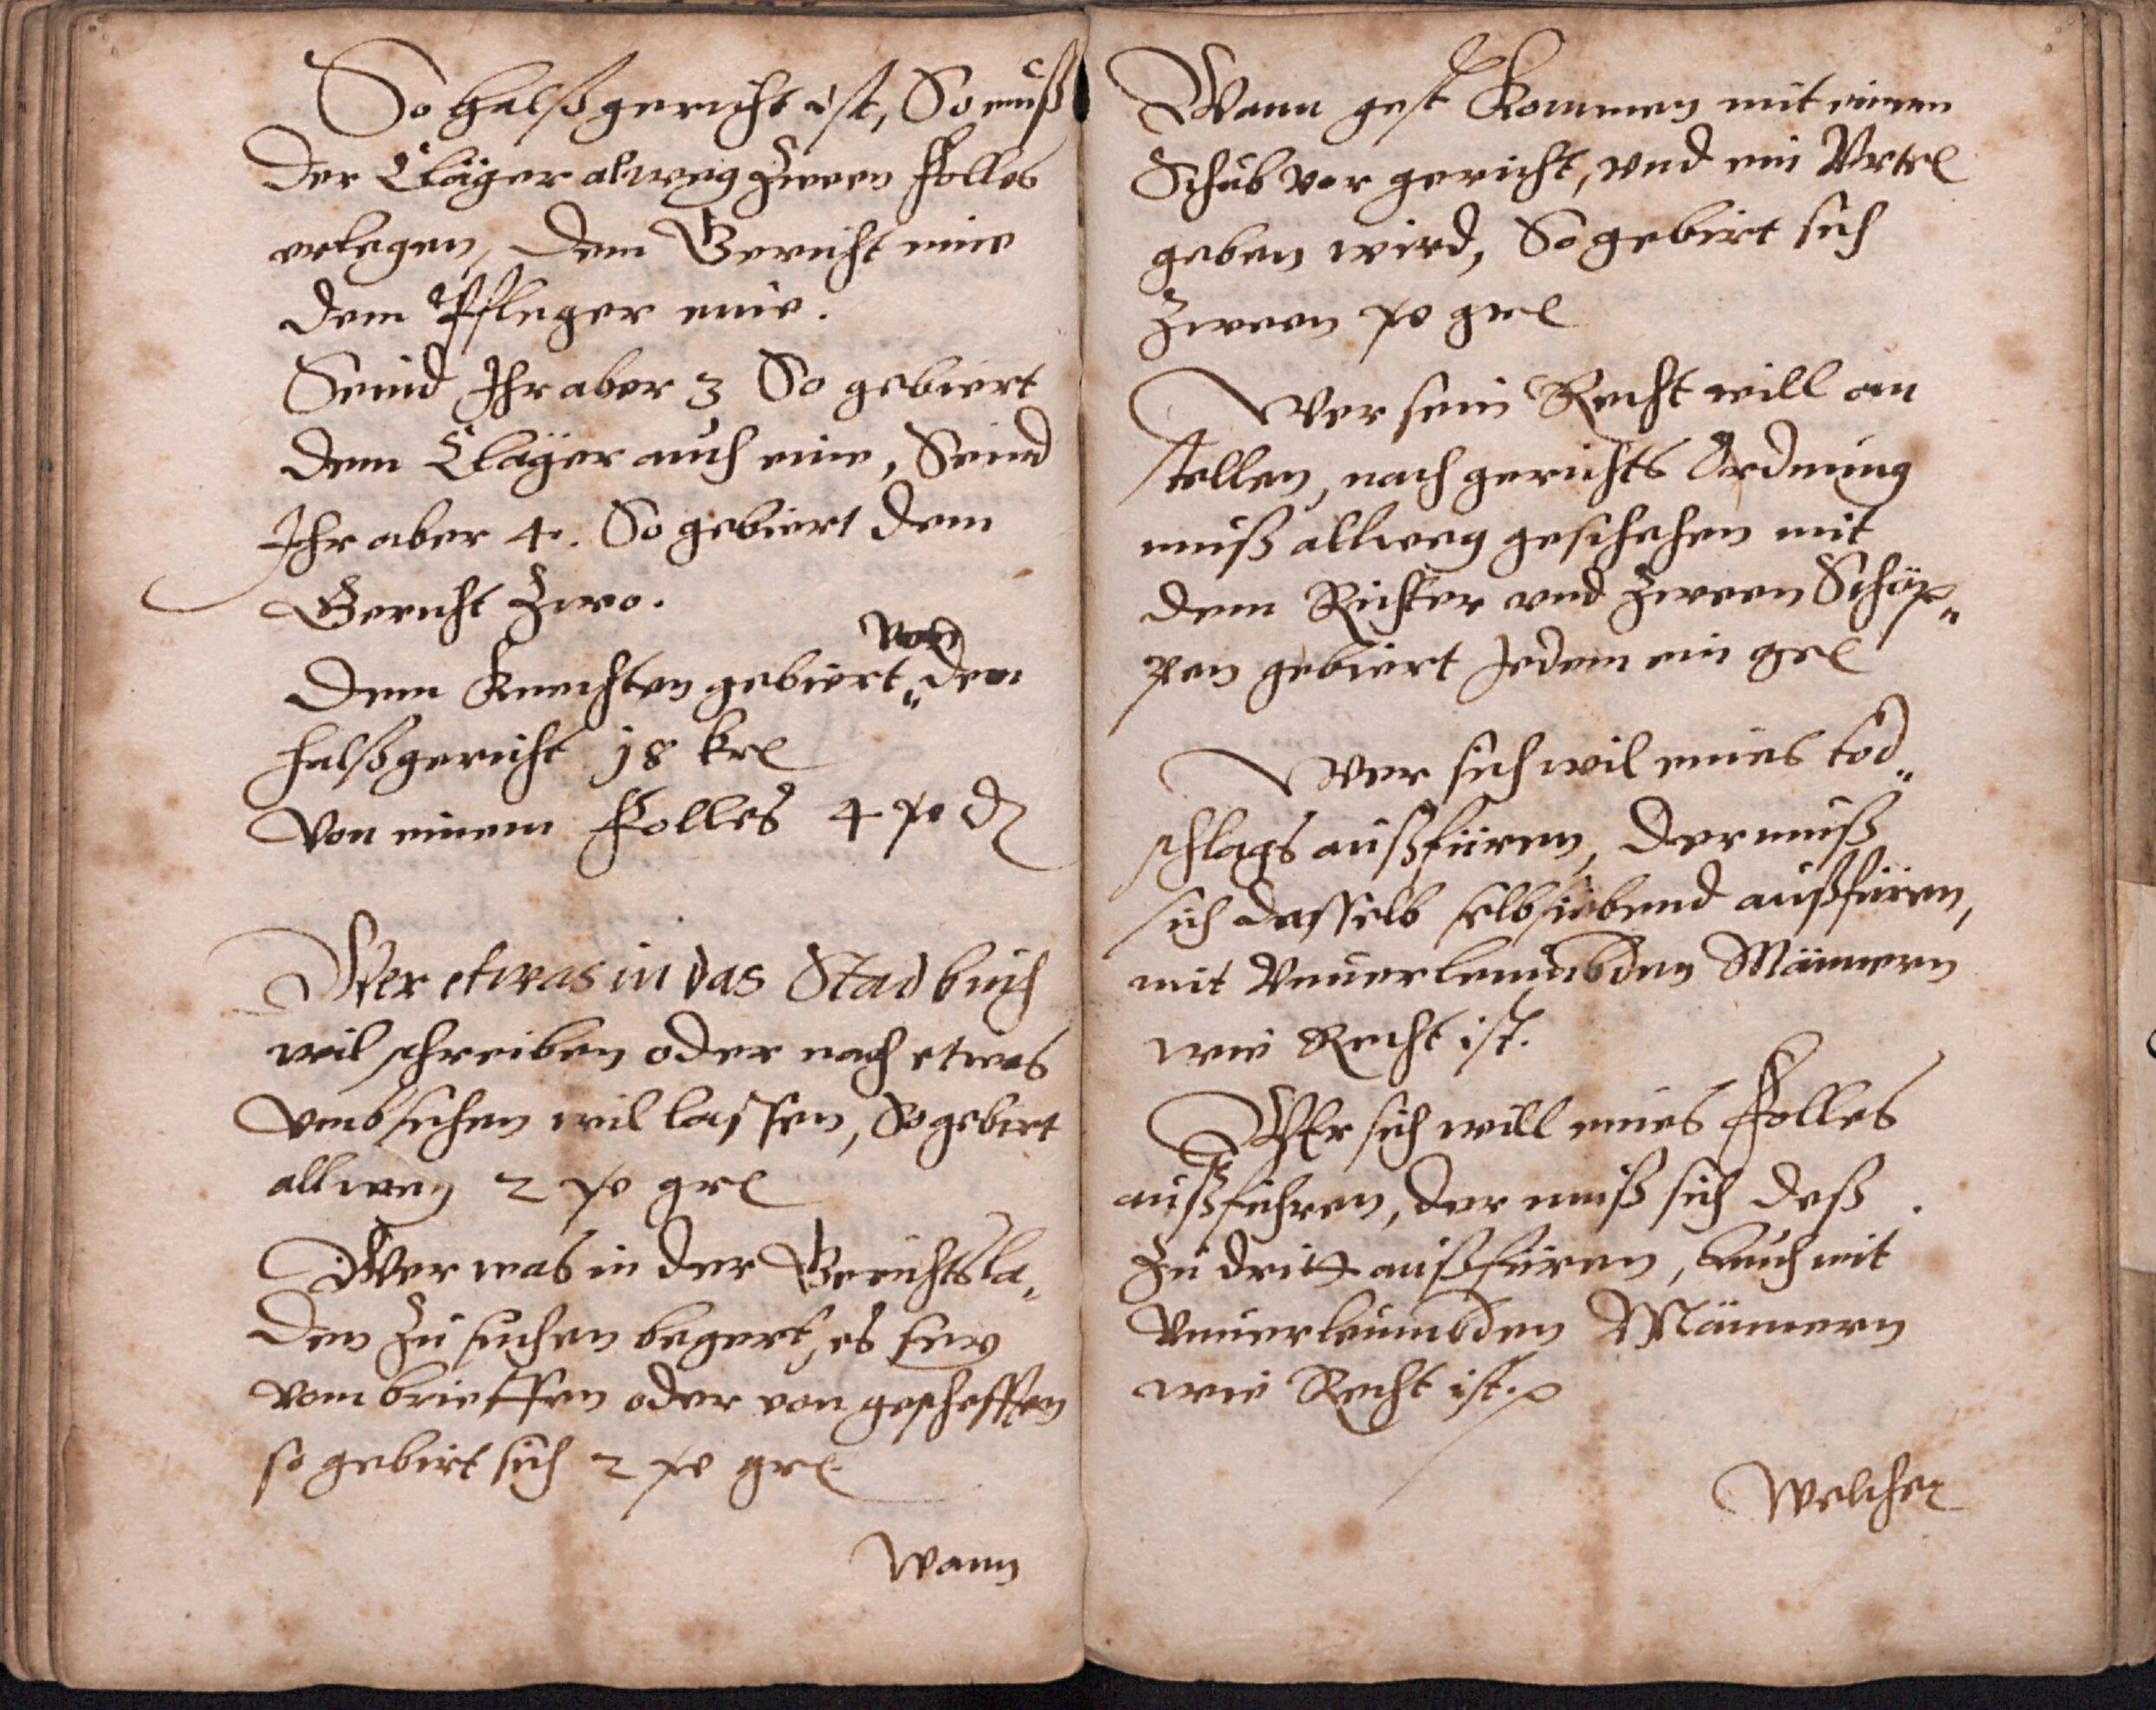 So Halßgericht ist, So muß
der Cläger alweg zween Folles
erlegen, dem Gericht eine
dem Pfleger eine.
Seind Ihr aber 3 So gebiert
dem Cläger auch eine, Seind
Ihr aber 4. So gebiert dem
Gericht zwo.
von
Dem Knechten gebiert„ dem
halßgericht 18 krl
Von einem Folles 4 po d
Wer etwas in das Stadbuch
wil schreiben oder nach etwas
Vmbsehen wil lassen, So gebirt
allweg 2 po grl
Wer was in der Gerichtsla„
den zu suchen begert, es sey
vom brieffen oder von gescheffen
so gebirt sich 2 po grl
Wann
Wann gest Kommen mit einem
Schub vor gericht, vnd ein Vrtel
geben wird, So gebirt sich
zween po grl
Wer sein Recht will an
stellen, nach gerichts Ordnung
muß allweg geschehen mit
dem Richter vnd zween Schöp„
pen gebiert Jedem ein grl
Wer sich wil eines tod„
schlags außfüren, der muß
sich desselb selbsiebend außfüren,
mit Vnuerleumbden Männern
wie Recht ist.
Wer sich will eines Folles
außführen, der muß sich deß
zu dritt außfüren, auch mit
Vnuerleumbden Männern
wie Recht ist.
Welcher